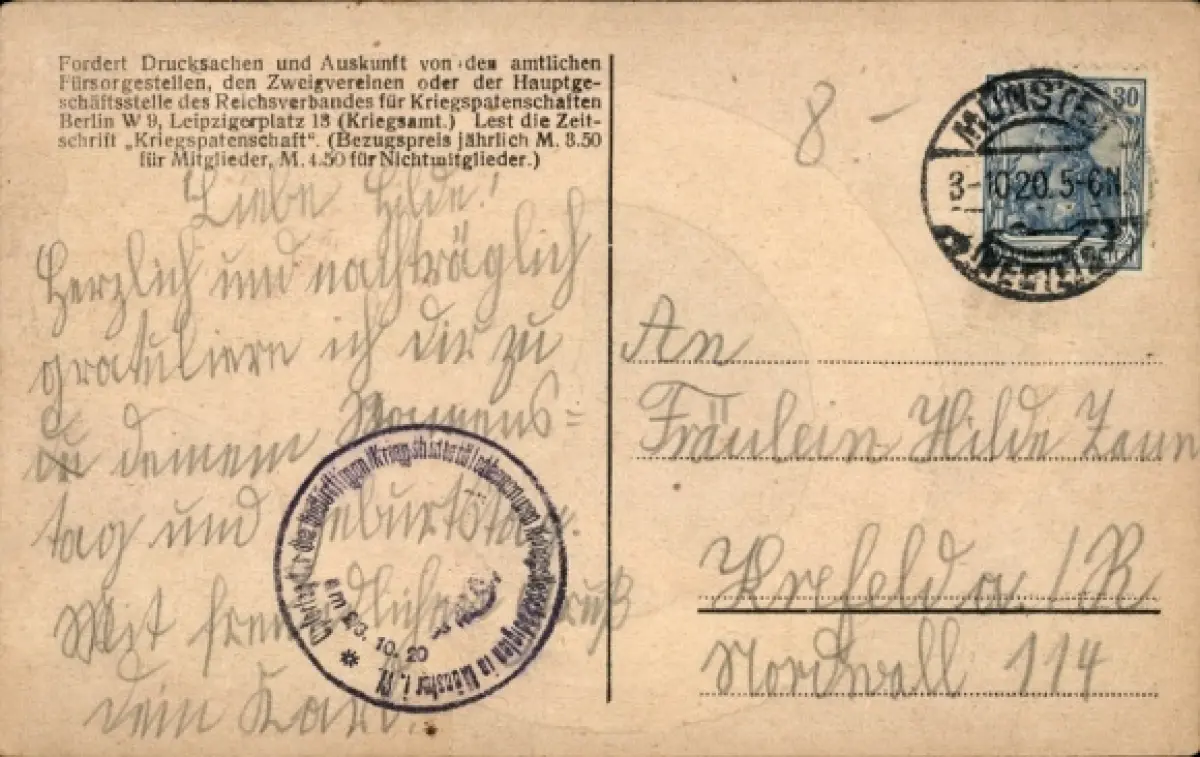 Fordert Drucksachen und Auskunft von den amtlichen
Fürsorgestellen, den Zweigvereinen oder der Hauptge-
schäftsstelle des Reichsverbandes für Kriegspatenschaften
Berlin W 9, Leipzigerplatz 13 (Kriegsamt.) Lest die Zeit-
schrift „Kriegspatenschaft“. (Bezugspreis jährlich M. 3.50
für Mitglieder, M. 4.50 für Nichtmitglieder.)
Liebe Hilde!
Herzlich und nachträglich
gratuliere ich dir zu
deinem Namens=
tag und Geburtstag.
Mit freundlichem Gruß
dein Karl.
der bedürftigen Kriegshinterbliebenen und in Münster i. W.
am 03. 10. 20
8 -
30
MÜNSTER
3-10 20. 5-6N.
(WESTF.)
An
Fräulein Hilde
Krefeld a./R
Nordwall 114